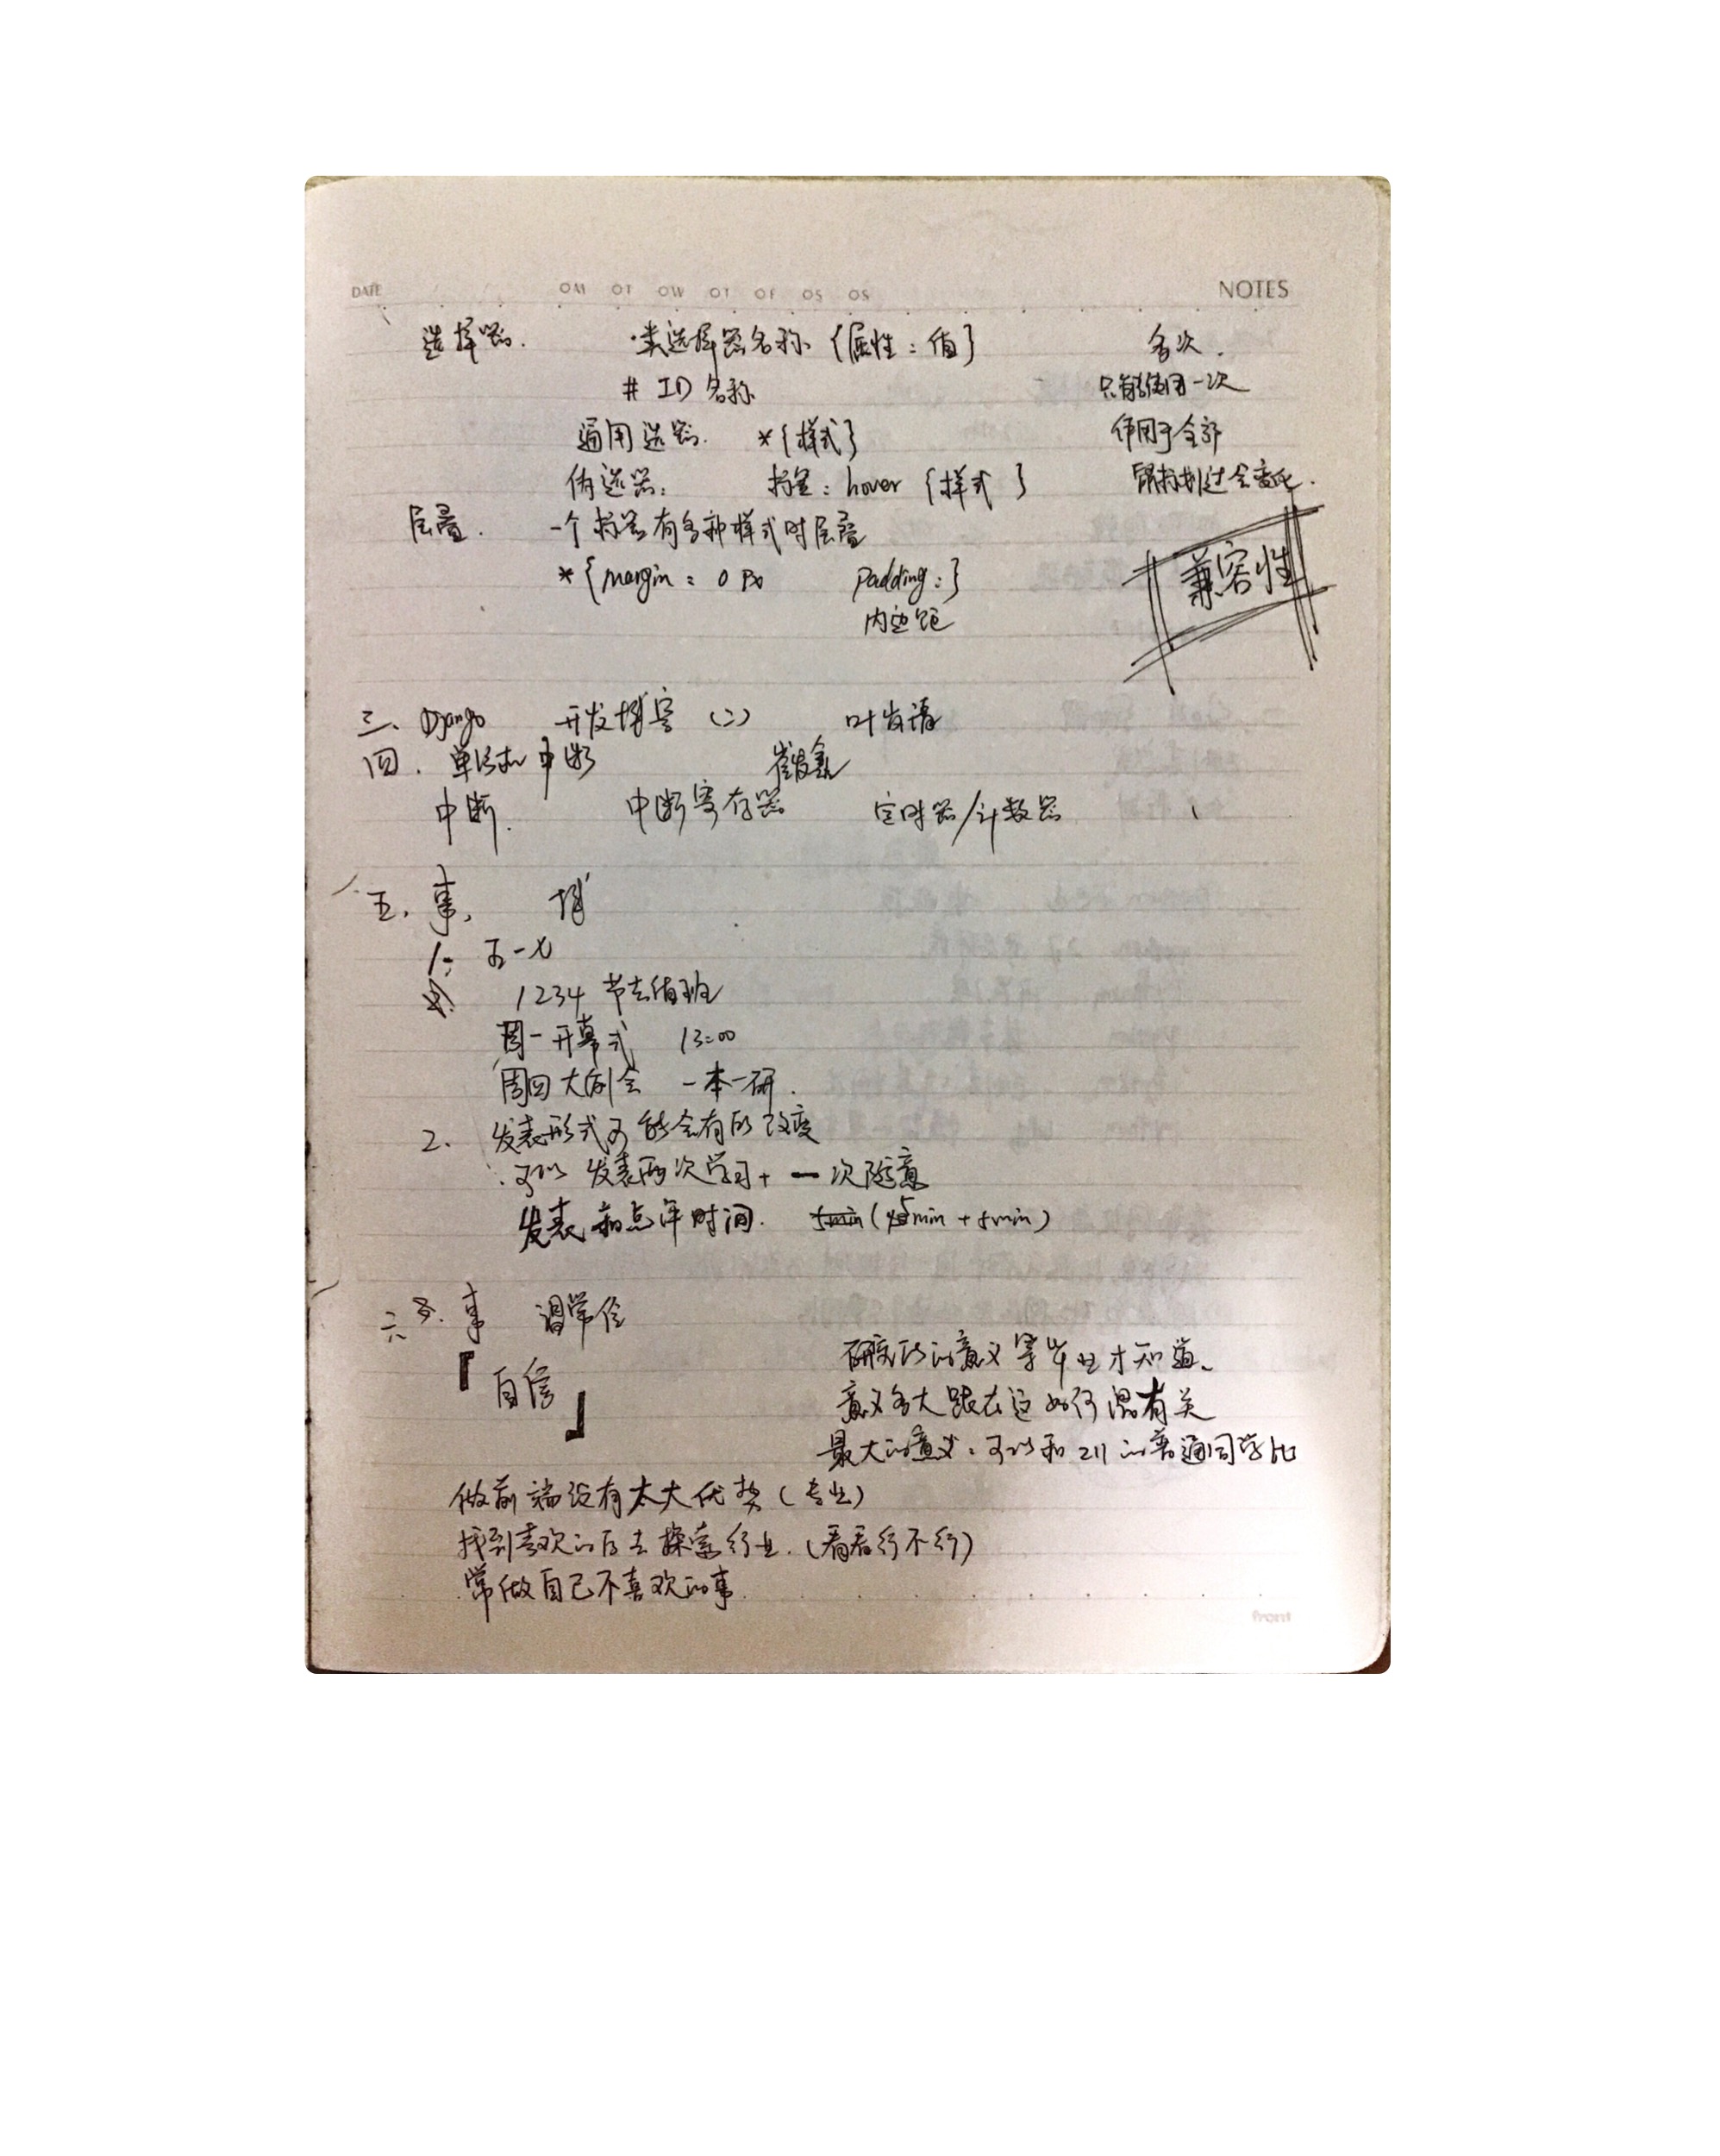 DATE OM OT OW OT OF OS OS NOTES
选择器. ·类选择器名称 {属性:值} 多次.
# ID 名称 只能使用一次
通用选器. *{样式} 作用于全部
伪选器: 标签:hover {样式 } 鼠标划过会变化.
层叠. 一个标签有多种样式时层叠
*{margin: 0 px padding:}
内边距
兼容性
三、Django 开发博客 (二) 叶发清
四. 单片机中断
中断. 中断寄存器 定时器/计数器
五. 事,
1: 五一七
1234 节去值班
周一开幕式 13:00
周四大例会 一本一研.
2. 发表形式可能会有所改变
∴可以 发表两次学习+ 一次随意
发表和点评时间. 5min (5min + 5min)
六 事
『自信』
研究所的意义等毕业才知道、
意义多大跟在这如何混有关
最大的意义:可以和 211 的普通同学比
做前端没有太大优势(专业)
找到喜欢的后去探索行业.(看看行不行)
常做自己不喜欢的事.
front